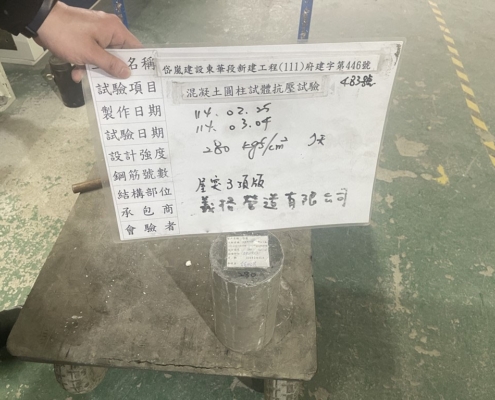 名稱 岱嵐建設東華段新建工程(111)府建字第446號
483號
試驗項目 混凝土圓柱試體抗壓試驗
製作日期 114. 02. 25
試驗日期 114. 03. 04
設計強度 280 kgf/cm² 7天
鋼筋號數
結構部位 屋突3頂版
承包商 義格營造有限公司
會驗者
280